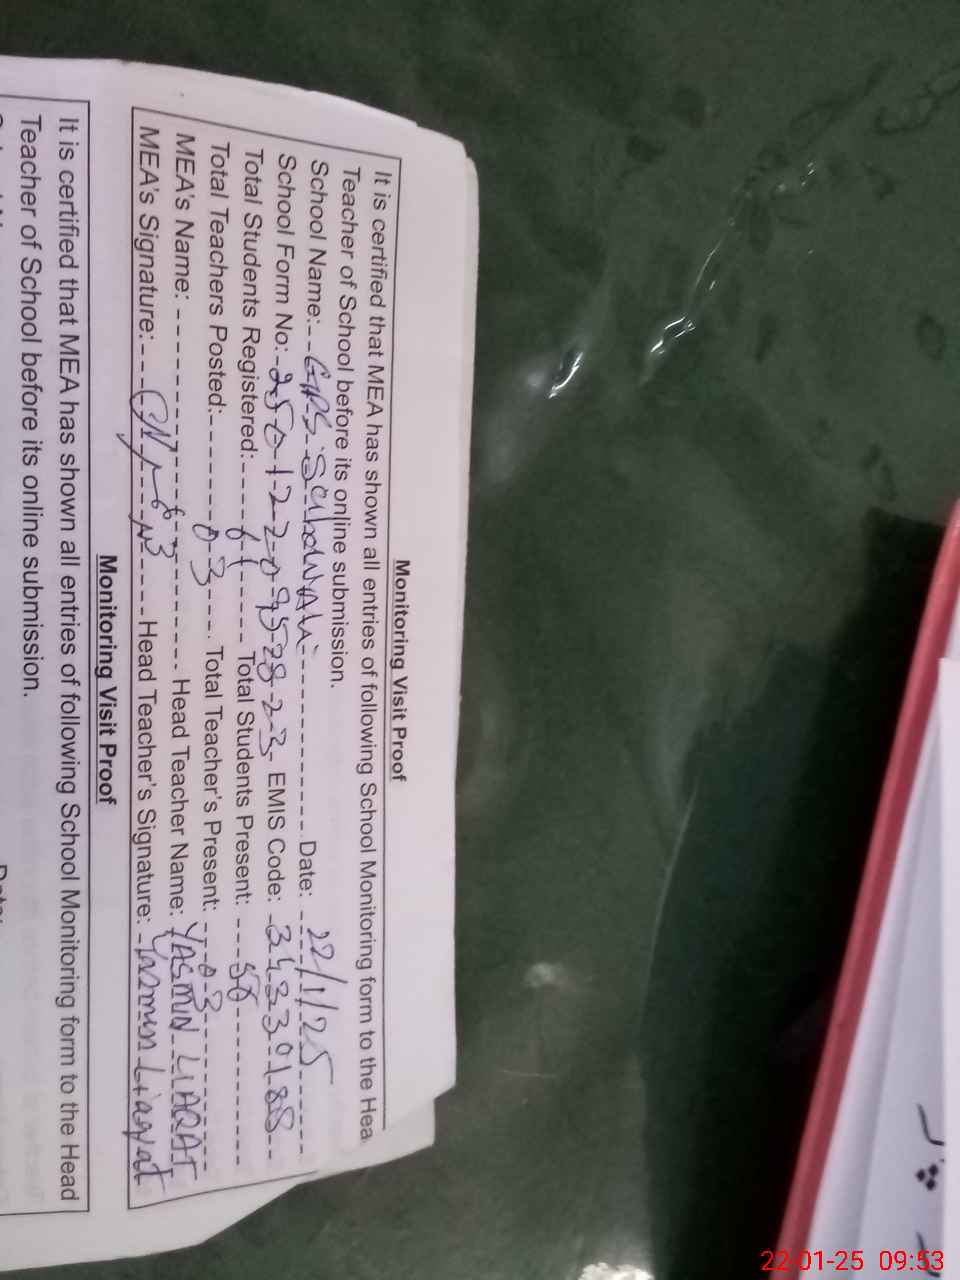 Monitoring Visit Proof
It is certified that MEA has shown all entries of following School Monitoring form to the Hea
Teacher of School before its online submission.
School Name:--GPS--------------Date: 22/1/25
School Form No: EMIS Code: 34330188
Total Students Registered: Total Students Present:
Total Teachers Posted: 03 Total Teacher's Present: 03
MEA's Name: Head Teacher Name: YASMIN LIAQAT
MEA's Signature: Head Teacher's Signature: Yasmin Liaqat
Monitoring Visit Proof
It is certified that MEA has shown all entries of following School Monitoring form to the Head
Teacher of School before its online submission.
22-01-25 09:53